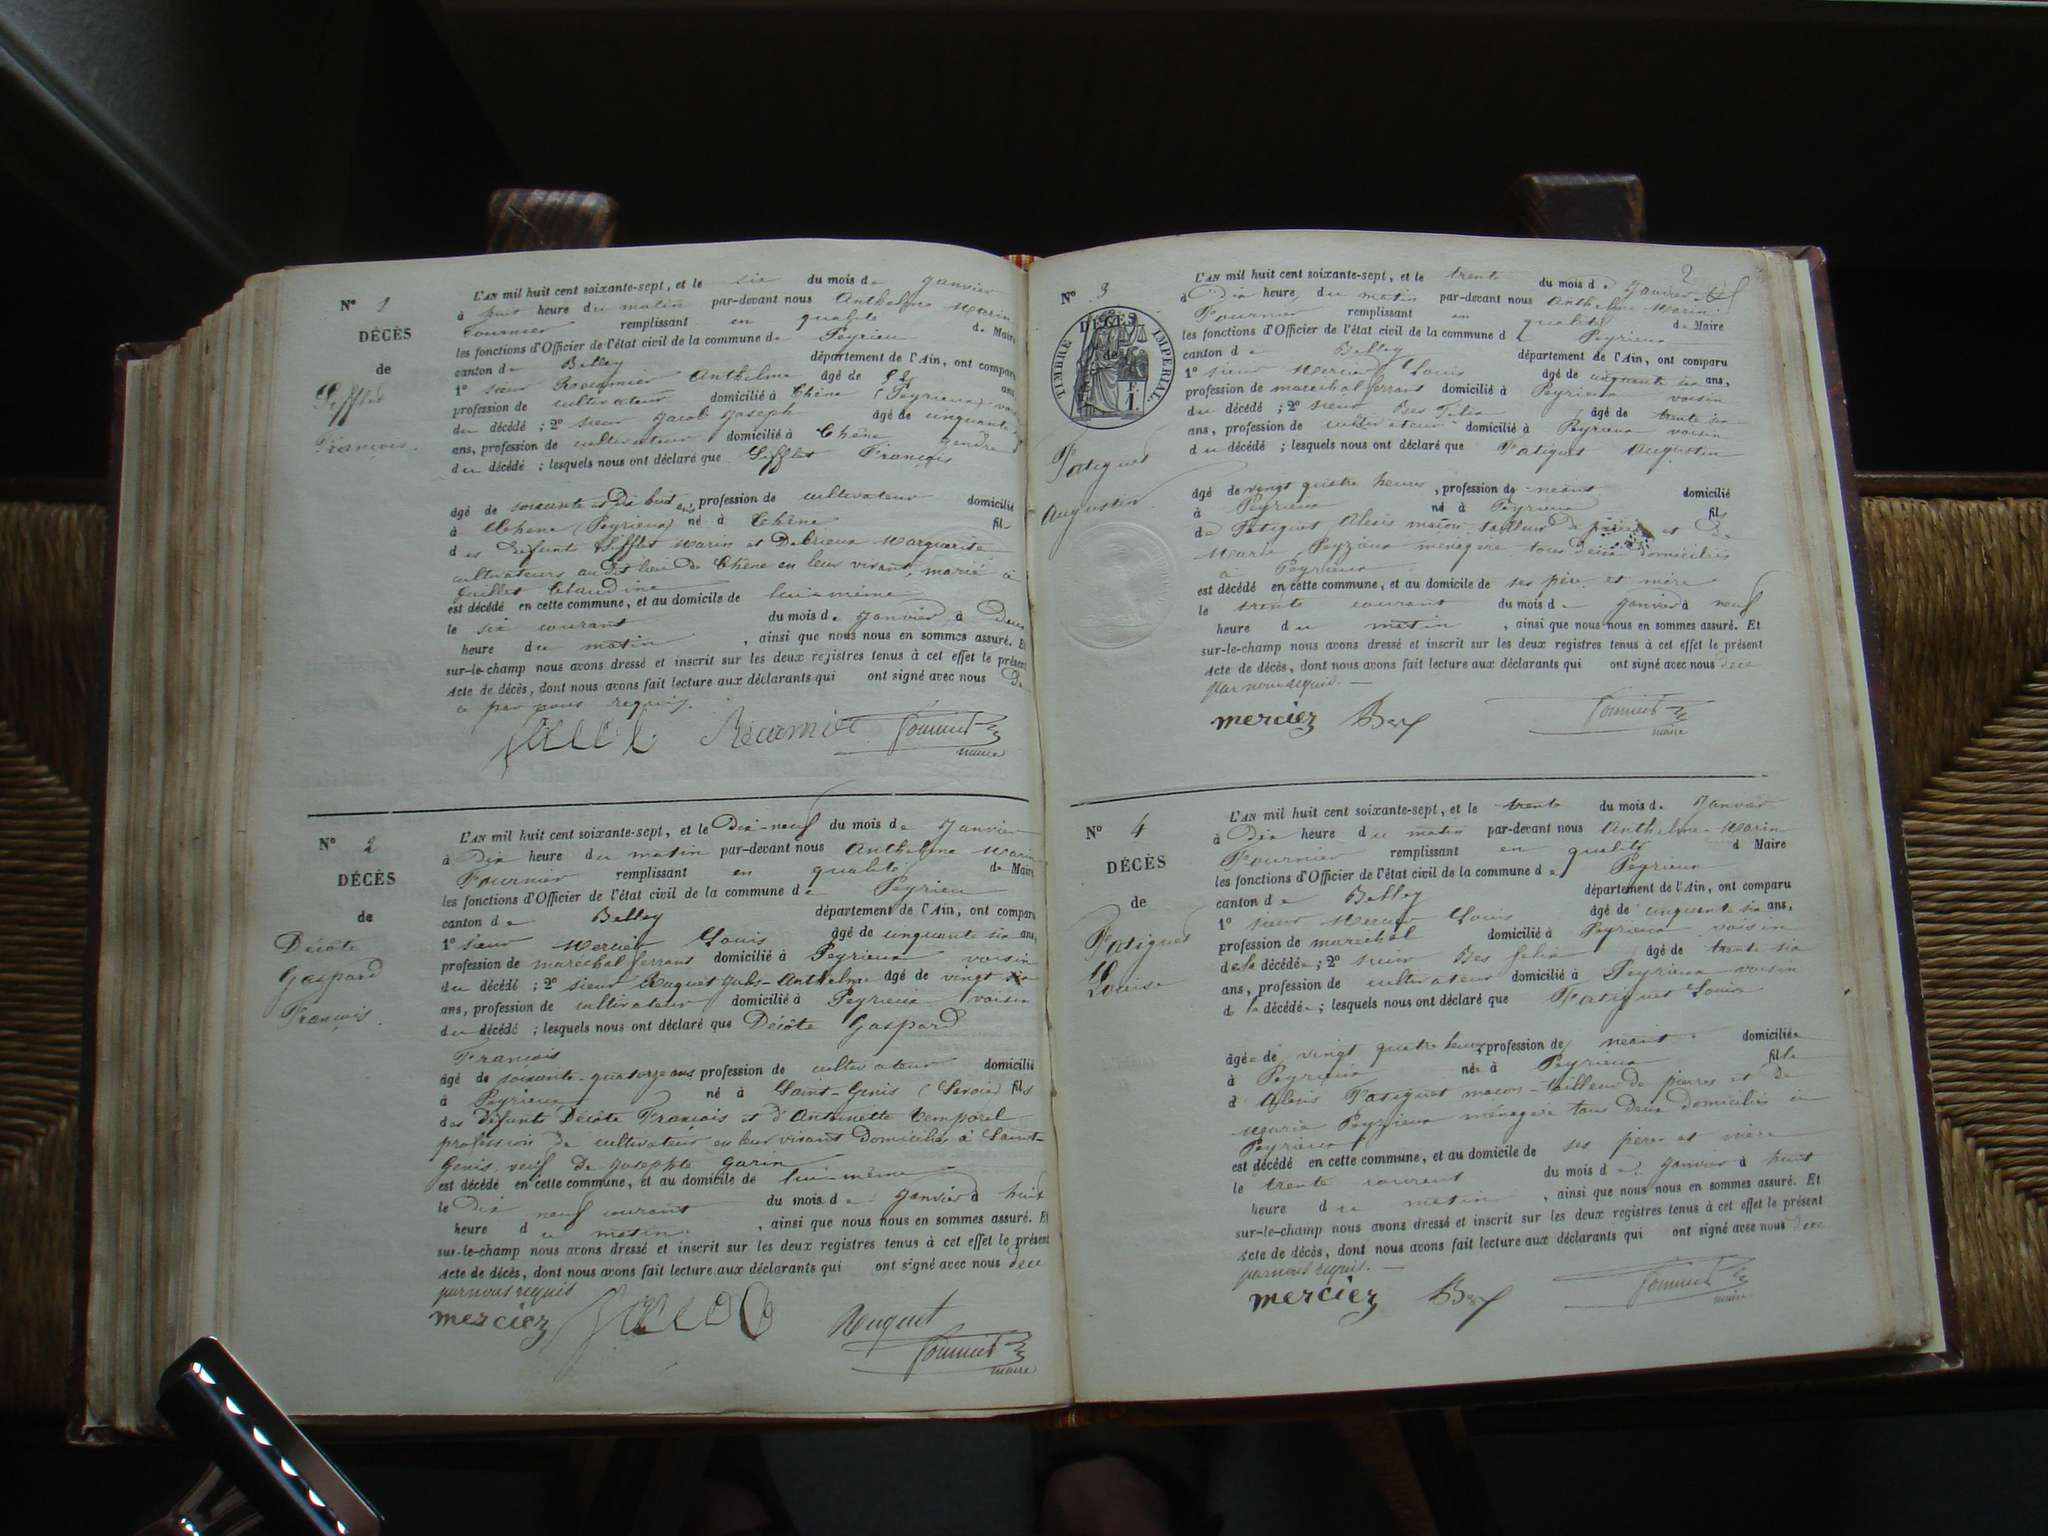 N° 1
DÉCÈS
de
Sifflet
François.
L'AN mil huit cent soixante-sept, et le six du mois de Janvier
à huit heure du matin par-devant nous Anthelme Marin
Fournier remplissant en qualité de Maire
les fonctions d'Officier de l'état civil de la commune de Peyrieu
canton de Belley département de l'Ain, ont comparu
1° sieur Récamier Anthelme âgé de ans,
profession de cultivateur domicilié à Chêne (Peyrieux) voisin
du décédé ; 2° sieur Jacob Joseph âgé de cinquante
ans, profession de cultivateur domicilié à Chêne gendre
du décédé ; lesquels nous ont déclaré que Sifflet François
âgé de soixante et dix huit ans, profession de cultivateur domicilié
à Chêne (Peyrieux) né à Chêne fils
des défunts Sifflet Marin et Debrieux Marguerite
cultivateurs au dit lieu de Chêne en leur vivant, marié à
Claudine
est décédé en cette commune, et au domicile de lui-même
le six courant du mois de Janvier à Deux
heure du matin , ainsi que nous nous en sommes assuré. Et
sur-le-champ nous avons dressé et inscrit sur les deux registres tenus à cet effet le présent
Acte de décès, dont nous avons fait lecture aux déclarants qui ont signé avec nous De
ce par nous requis.
Jacob Récamier Fournier
maire
N° 2
DÉCÈS
de
Décôte
Gaspard
François.
L'AN mil huit cent soixante-sept, et le Dix-neuf du mois de Janvier
à Dix heure du matin par-devant nous Anthelme Marin
Fournier remplissant en qualité de Maire
les fonctions d'Officier de l'état civil de la commune de Peyrieu
canton de Belley département de l'Ain, ont comparu
1° sieur Mercier Louis âgé de cinquante six ans,
profession de maréchal ferrant domicilié à Peyrieux voisin
du décédé ; 2° sieur Huguet Anthelme âgé de vingt six
ans, profession de cultivateur domicilié à Peyrieux voisin
du décédé ; lesquels nous ont déclaré que Décôte Gaspard
François
âgé de soixante-quatorze ans profession de cultivateur domicilié
à Peyrieux né à Saint-Genis (Savoie) fils
des défunts Décôte François et d'Antoinette Temporel
profession de cultivateur en leur vivant domiciliés à Saint-
Genis, veuf de Josephte Garin
est décédé en cette commune, et au domicile de lui-même
le Dix neuf courant du mois de Janvier à huit
heure du matin , ainsi que nous nous en sommes assuré. Et
sur-le-champ nous avons dressé et inscrit sur les deux registres tenus à cet effet le présent
Acte de décès, dont nous avons fait lecture aux déclarants qui ont signé avec nous de ce
par nous requis
mercier Huguet
Fournier
maire
2
N° 3
TIMBRE IMPÉRIAL
DÉCÈS
de
Fatiguet
Augustin
L'AN mil huit cent soixante-sept, et le trente du mois de Janvier
à Dix heure du matin par-devant nous Anthelme Marin
Fournier remplissant en qualité de Maire
les fonctions d'Officier de l'état civil de la commune de Peyrieux
canton de Belley département de l'Ain, ont comparu
1° sieur Mercier Louis âgé de cinquante six ans,
profession de maréchal ferrant domicilié à Peyrieux voisin
du décédé ; 2° sieur Bes Félix âgé de trente six
ans, profession de cultivateur domicilié à Peyrieux voisin
du décédé ; lesquels nous ont déclaré que Fatiguet Augustin
âgé de vingt quatre heures, profession de néant domicilié
à Peyrieux né à Peyrieux fils
de Fatiguet Alexis maçon tailleur de pierres et De
Marie Peyrieux ménagère, tous deux domiciliés
à Peyrieux
est décédé en cette commune, et au domicile de ses père et mère
le trente courant du mois de Janvier à neuf
heure du matin , ainsi que nous nous en sommes assuré. Et
sur-le-champ nous avons dressé et inscrit sur les deux registres tenus à cet effet le présent
Acte de décès, dont nous avons fait lecture aux déclarants qui ont signé avec nous de ce
par nous requis. —
mercier Bes Fournier
maire
N° 4
DÉCÈS
de
Fatiguet
Louise
L'AN mil huit cent soixante-sept, et le trente du mois de Janvier
à Dix heure du matin par-devant nous Anthelme-Marin
Fournier remplissant en qualité d Maire
les fonctions d'Officier de l'état civil de la commune de Peyrieux
canton de Belley département de l'Ain, ont comparu
1° sieur Mercier Louis âgé de cinquante six ans,
profession de maréchal domicilié à Peyrieux voisin
de la décédée ; 2° sieur Bes félix âgé de trente six
ans, profession de cultivateur domicilié à Peyrieux voisin
de la décédée ; lesquels nous ont déclaré que Fatiguet Louise
âgée de vingt quatre heures, profession de néant domiciliée
à Peyrieux née à Peyrieux fille
d'Alexis Fatiguet maçon-tailleur de pierres et de
Marie Peyrieux ménagère tous deux domiciliés à
Peyrieux
est décédé en cette commune, et au domicile de ses père et mère
le trente courant du mois de Janvier à huit
heure du matin , ainsi que nous nous en sommes assuré. Et
sur-le-champ nous avons dressé et inscrit sur les deux registres tenus à cet effet le présent
Acte de décès, dont nous avons fait lecture aux déclarants qui ont signé avec nous de ce
par nous requis. —
mercier Bes Fournier
maire